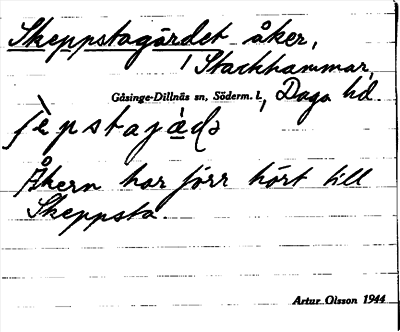 Skeppstagärdet åker,
Stackhammar,
Gåsinge-Dillnäs sn, Söderm. l., Daga hd.
Åkern har förr hört till
Skeppsta.
Artur Olsson 1944